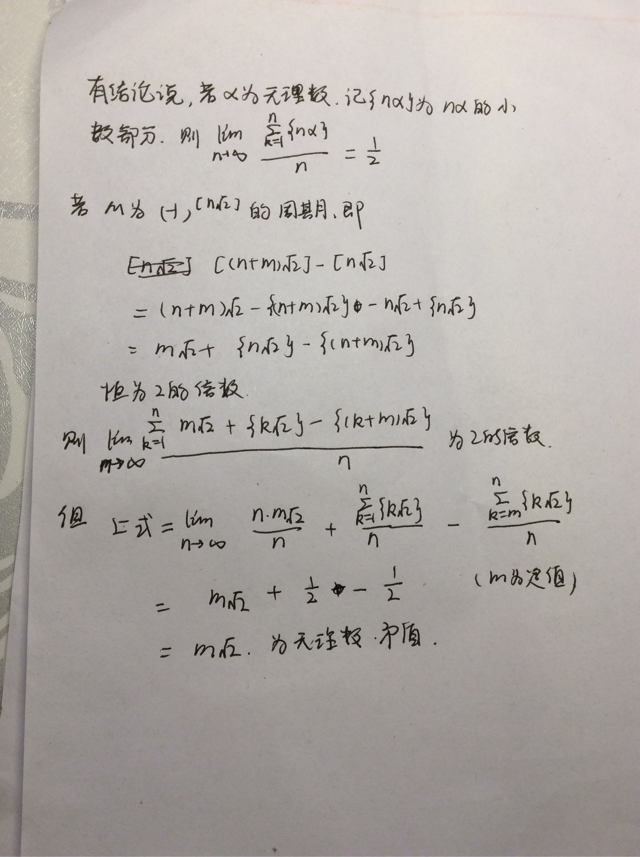 有结论说,若α为无理数.记{nα}为nα的小
数部分.则 lim_{n→∞} \frac{\sum_{k=1}^{n}{nα}}{n} = \frac{1}{2}
若m为(-1)^{[n√2]}的周期,即
[(n+m)√2]-[n√2]
= (n+m)√2 - {(n+m)√2} - n√2 + {n√2}
= m√2 + {n√2} - {(n+m)√2}
恒为2的倍数.
则 lim_{n→∞} \frac{\sum_{k=1}^{n} m√2 + {k√2} - {(k+m)√2}}{n} 为2的倍数.
但 上式 = lim_{n→∞} \frac{n·m√2}{n} + \frac{\sum_{k=1}^{n}{k√2}}{n} - \frac{\sum_{k=m}^{n}{k√2}}{n}
= m√2 + \frac{1}{2} - \frac{1}{2} (m为定值)
= m√2. 为无理数.矛盾.